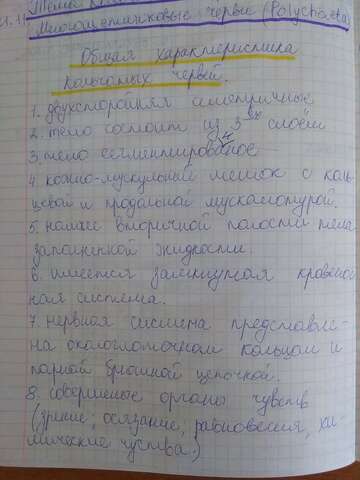 Многощетинковые черви (Polychaeta)
Общая характеристика
кольчатых червей.
1. двухсторойняя симетричные
2. тело состоит из 3ех слоем
3. тело сегментированое
4. кожно-мускульный мешок с коль
цевой и продольной мускулатурой.
5.наличее вторичной полости тела
заполненной жидкости.
6. имеется замкнутая кровенос
ная система.
7. нервная система представле-
на окологлоточном кольцом и
парной брюшной цепочкой.
8. совершеные органы чувств
(зрение, осязание, равновесия, хи-
мические чуства.)